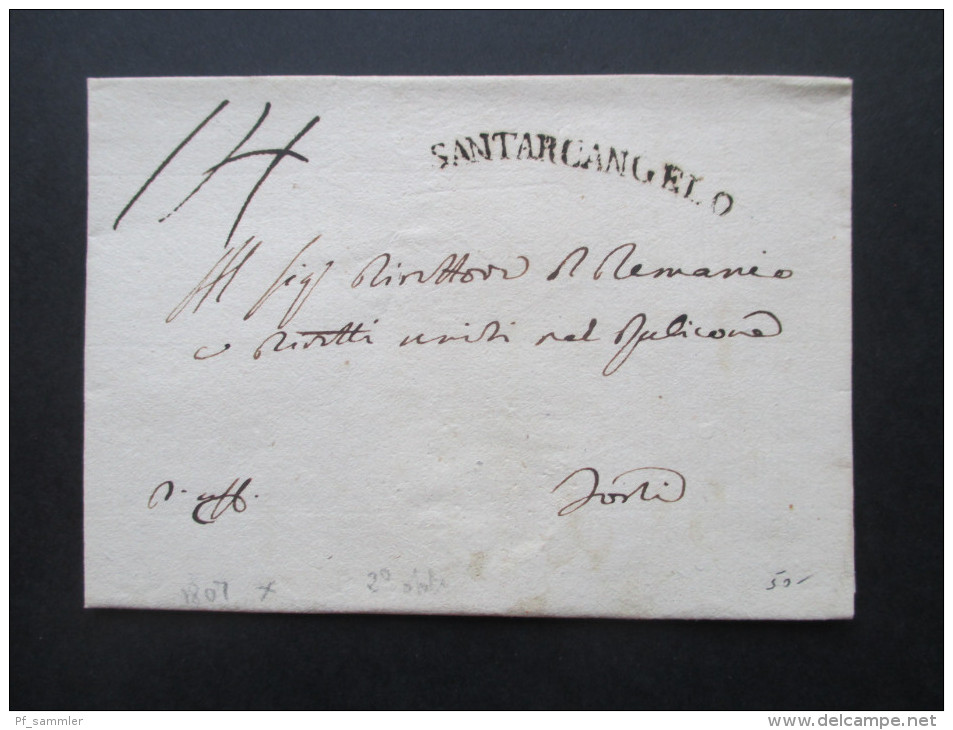 14
SANTARCANGELO
Al Sig.r Direttore del Demanio
e Diritti uniti nel Rubicone
d. uff.
Forlì
1807 x 2°
50-
Pf_sammler
www.delcampe.net